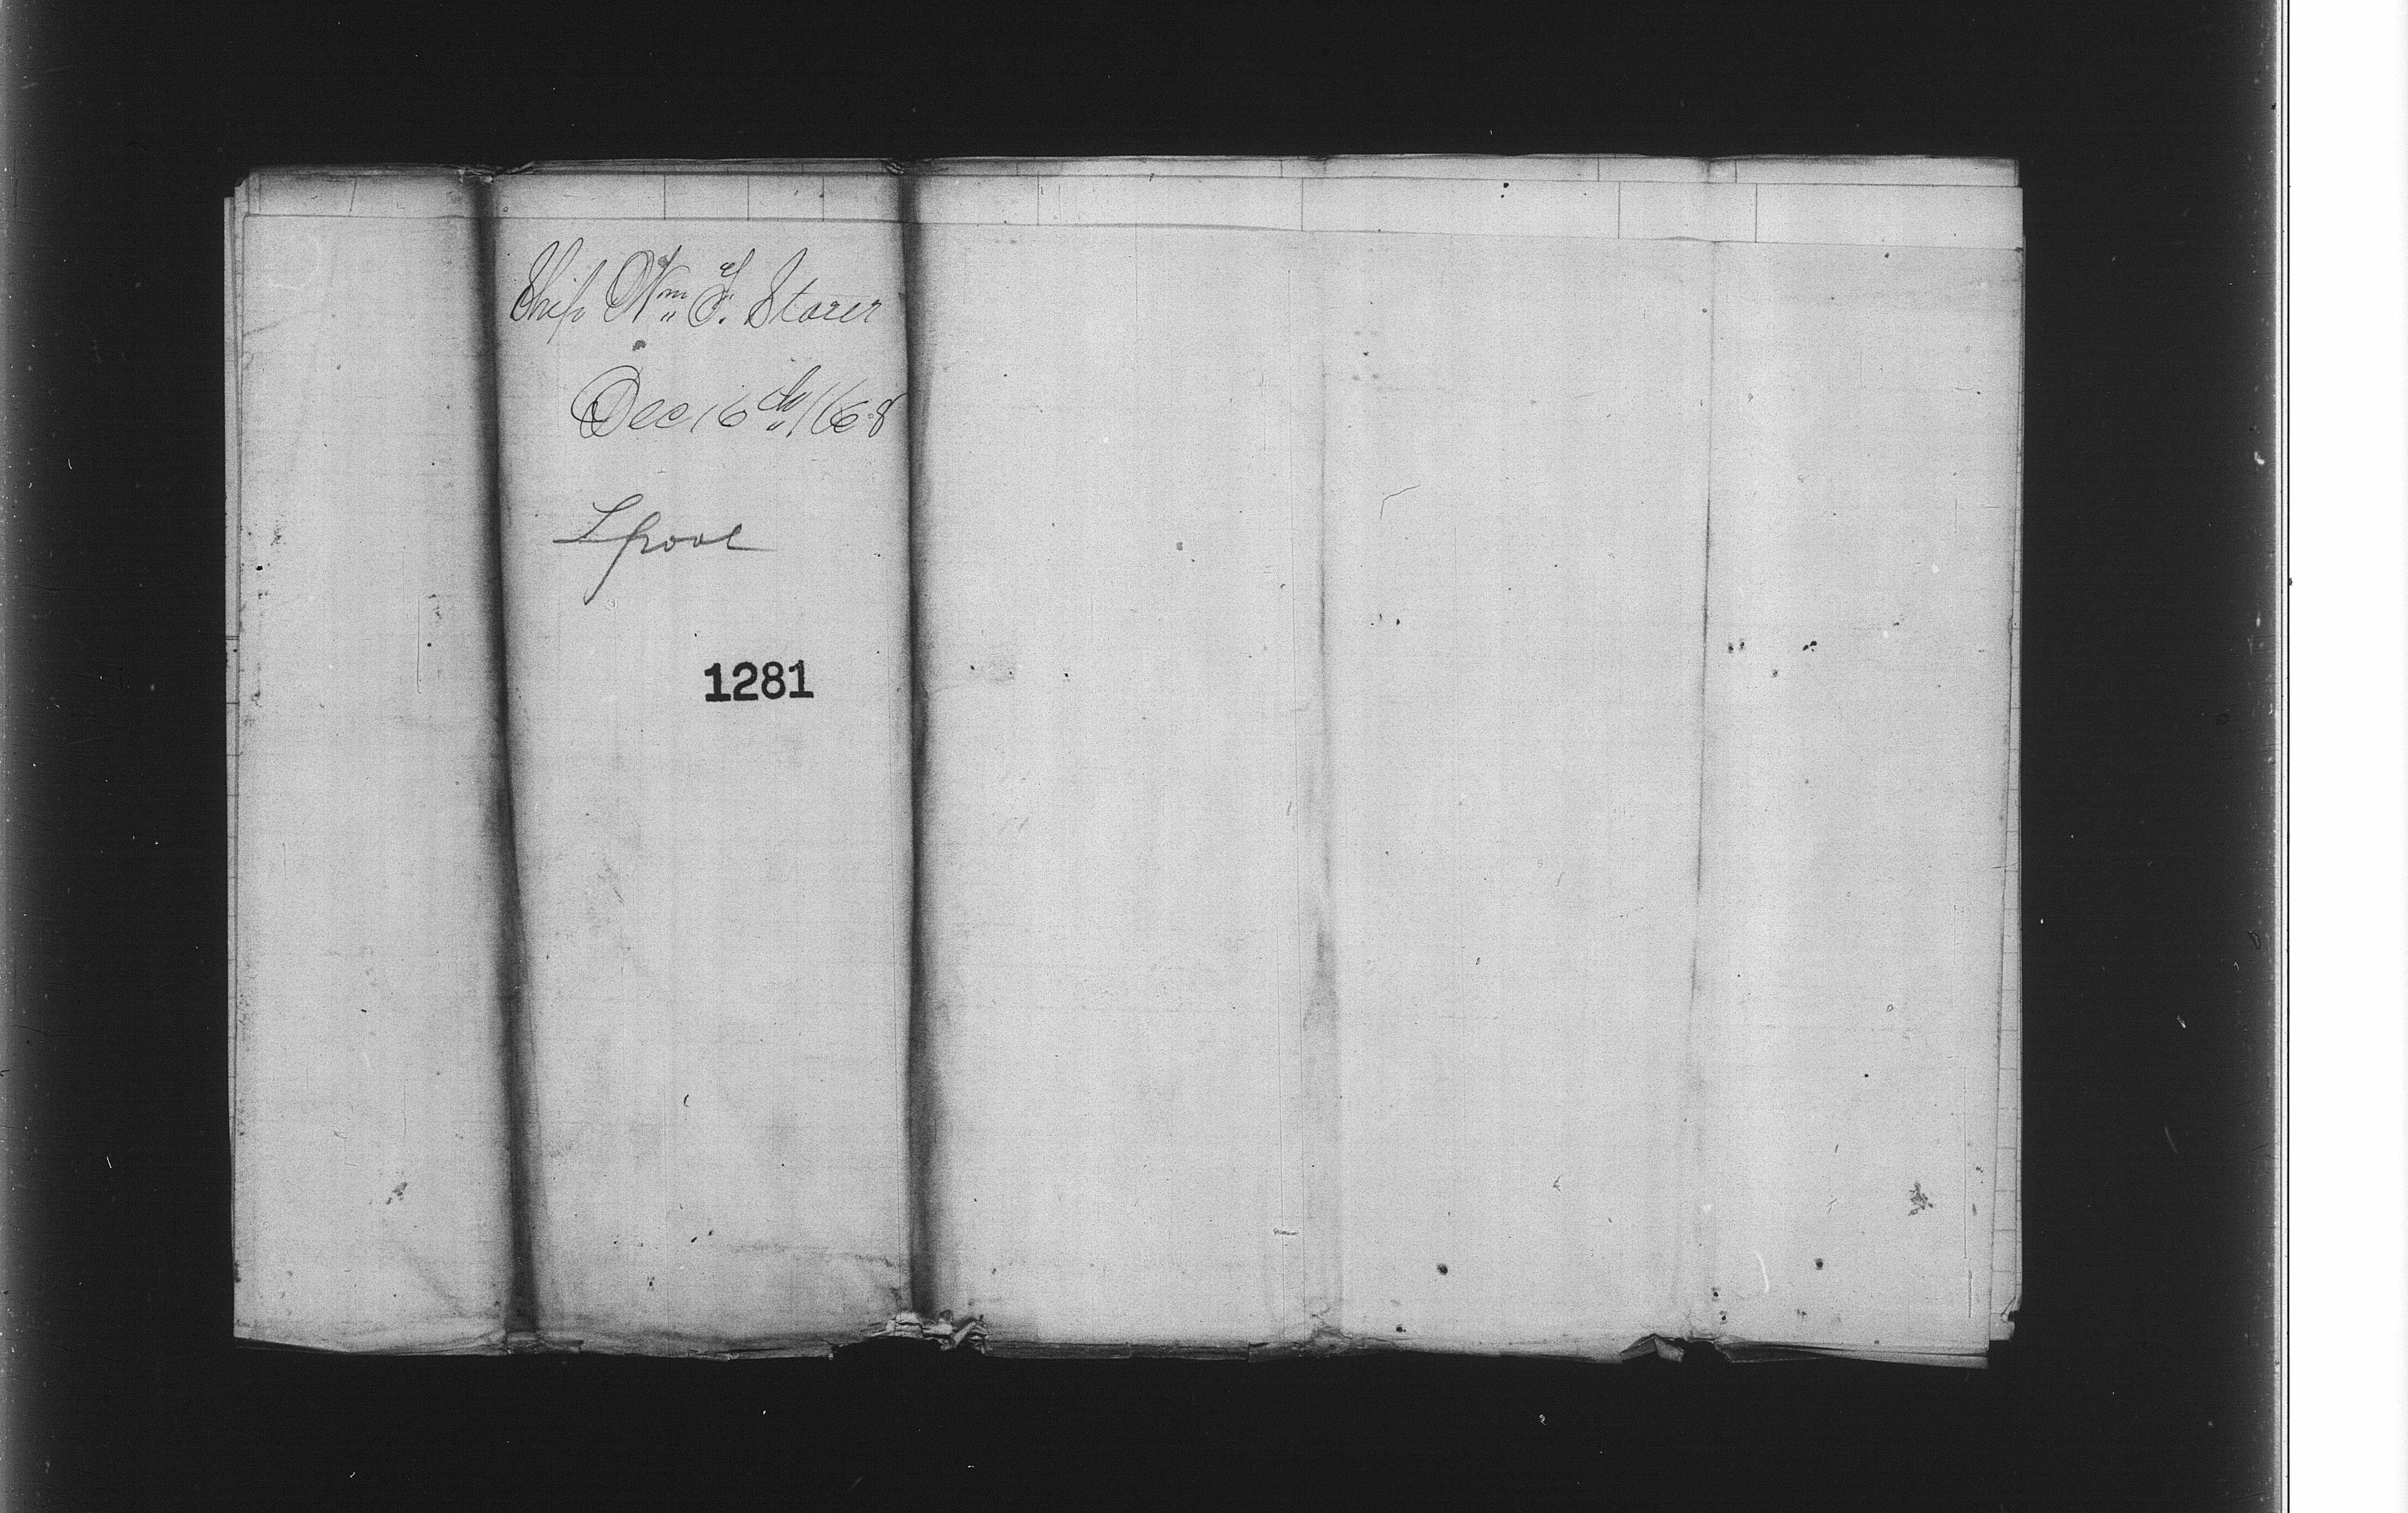 Ship Wm F. Storer
Dec 16th / 68
Lpool
1281